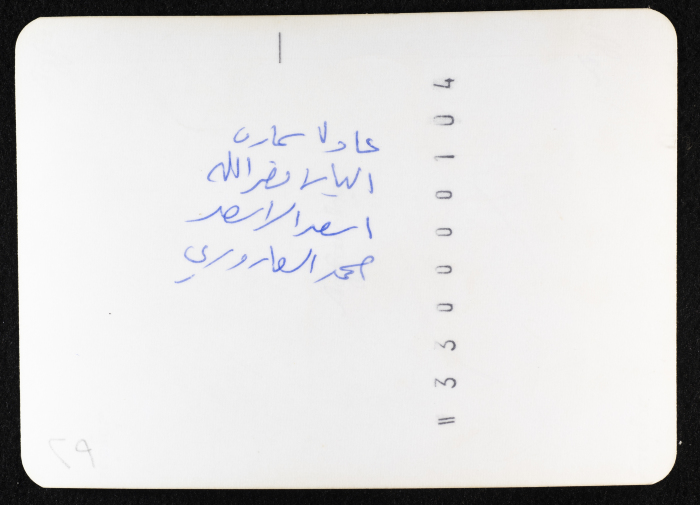 عادل سمارة
الياس نصرالله
اسعد الاسعد
محمد البطراوي
= 3 3 0 0 0 0 1 0 4